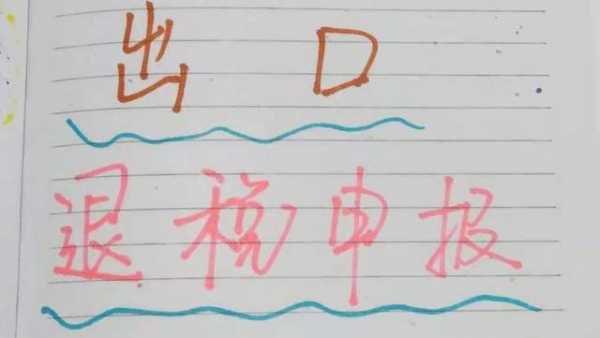 出口
退税申报